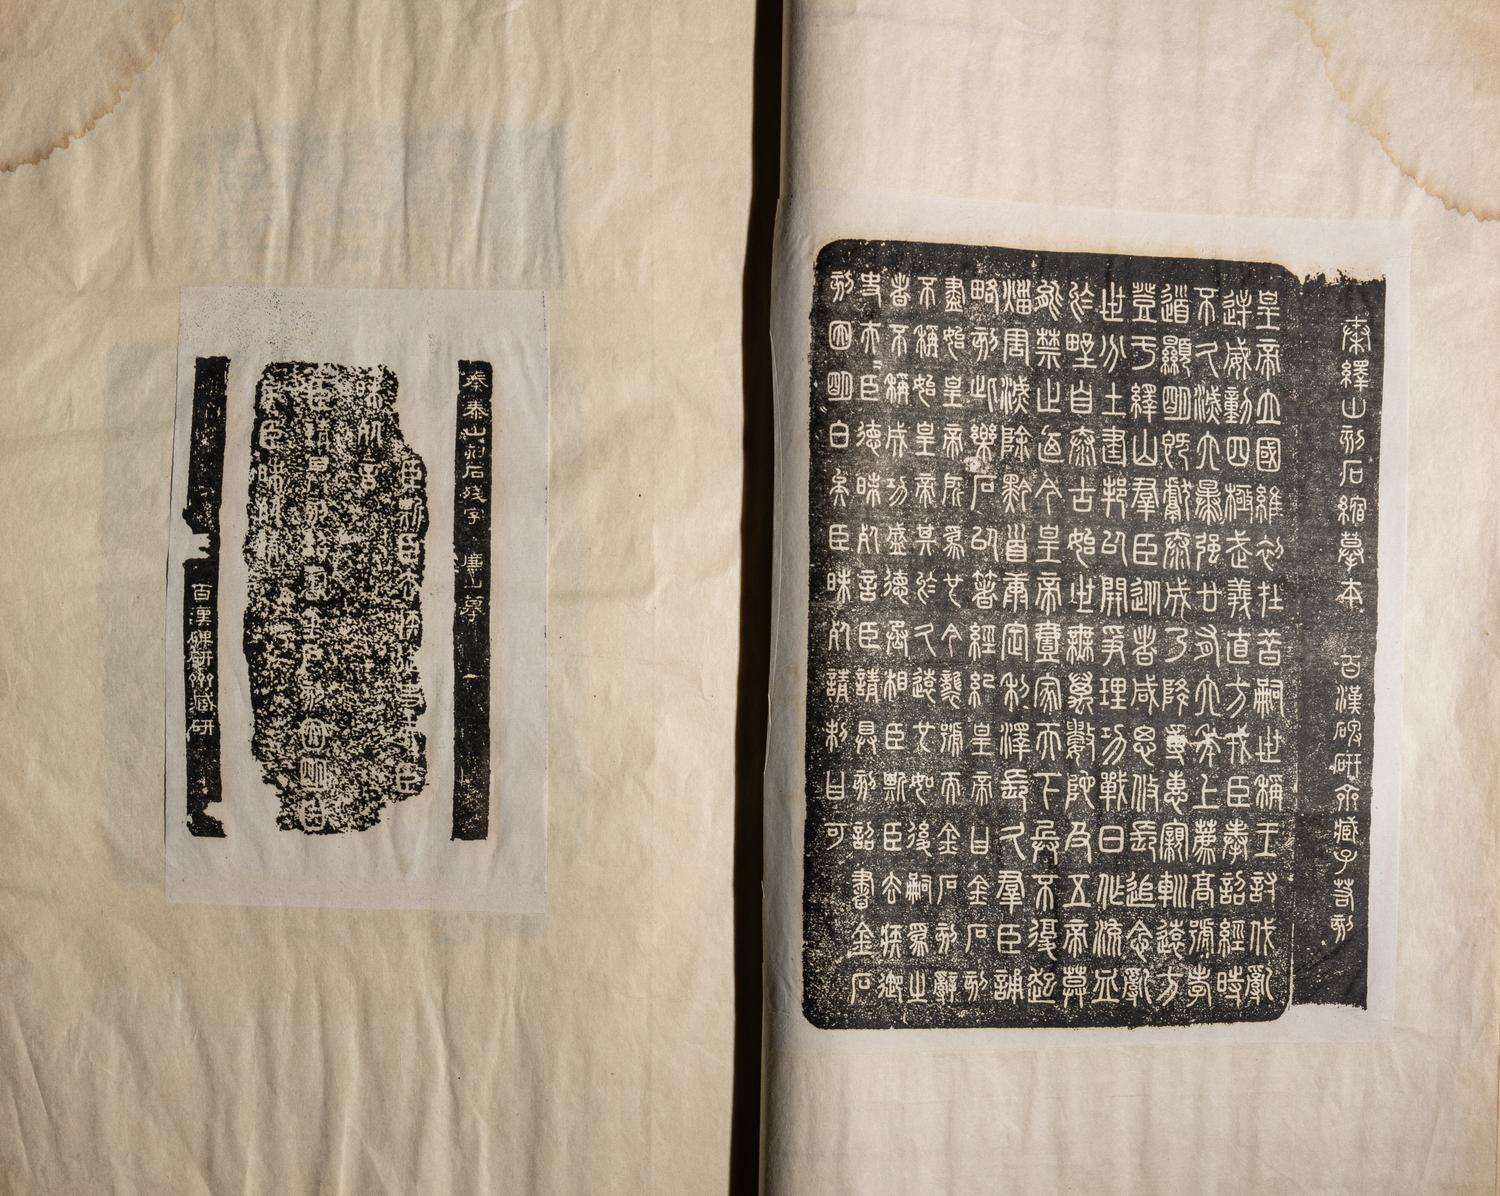 秦繹山刻石縮摹本 百漢碑研齋藏子若刻
皇帝立國維初在昔嗣世稱王討伐亂
逆威動四極武義直方戎臣奉詔經時
不久滅六暴強廿有六年上薦高號孝
道顯明既獻泰成乃降尃惠親巡遠方
登于繹山羣臣從者咸思攸長追念亂
世分土建邦以開爭理功戰日作流血
於野自泰古始世無萬數陀及五帝莫
能禁止迺今皇帝壹家天下兵不復起
災害滅除黔首康定利澤長久羣臣誦
略刻此樂石以著經紀皇帝曰金石刻
盡始皇帝所為也今襲號而金石刻辭
不稱始皇帝其於久遠也如後嗣為之
者不稱成功盛德丞相臣斯臣去疾御
史夫=臣德昧死言臣請具刻詔書金石
刻因明白矣臣昧死請制曰可
秦泰山刻石殘字 廉山摹
臣斯臣去疾御史夫臣
昧死言
臣請具刻詔書金石刻因明白
矣臣昧死請
百漢碑研齋藏研